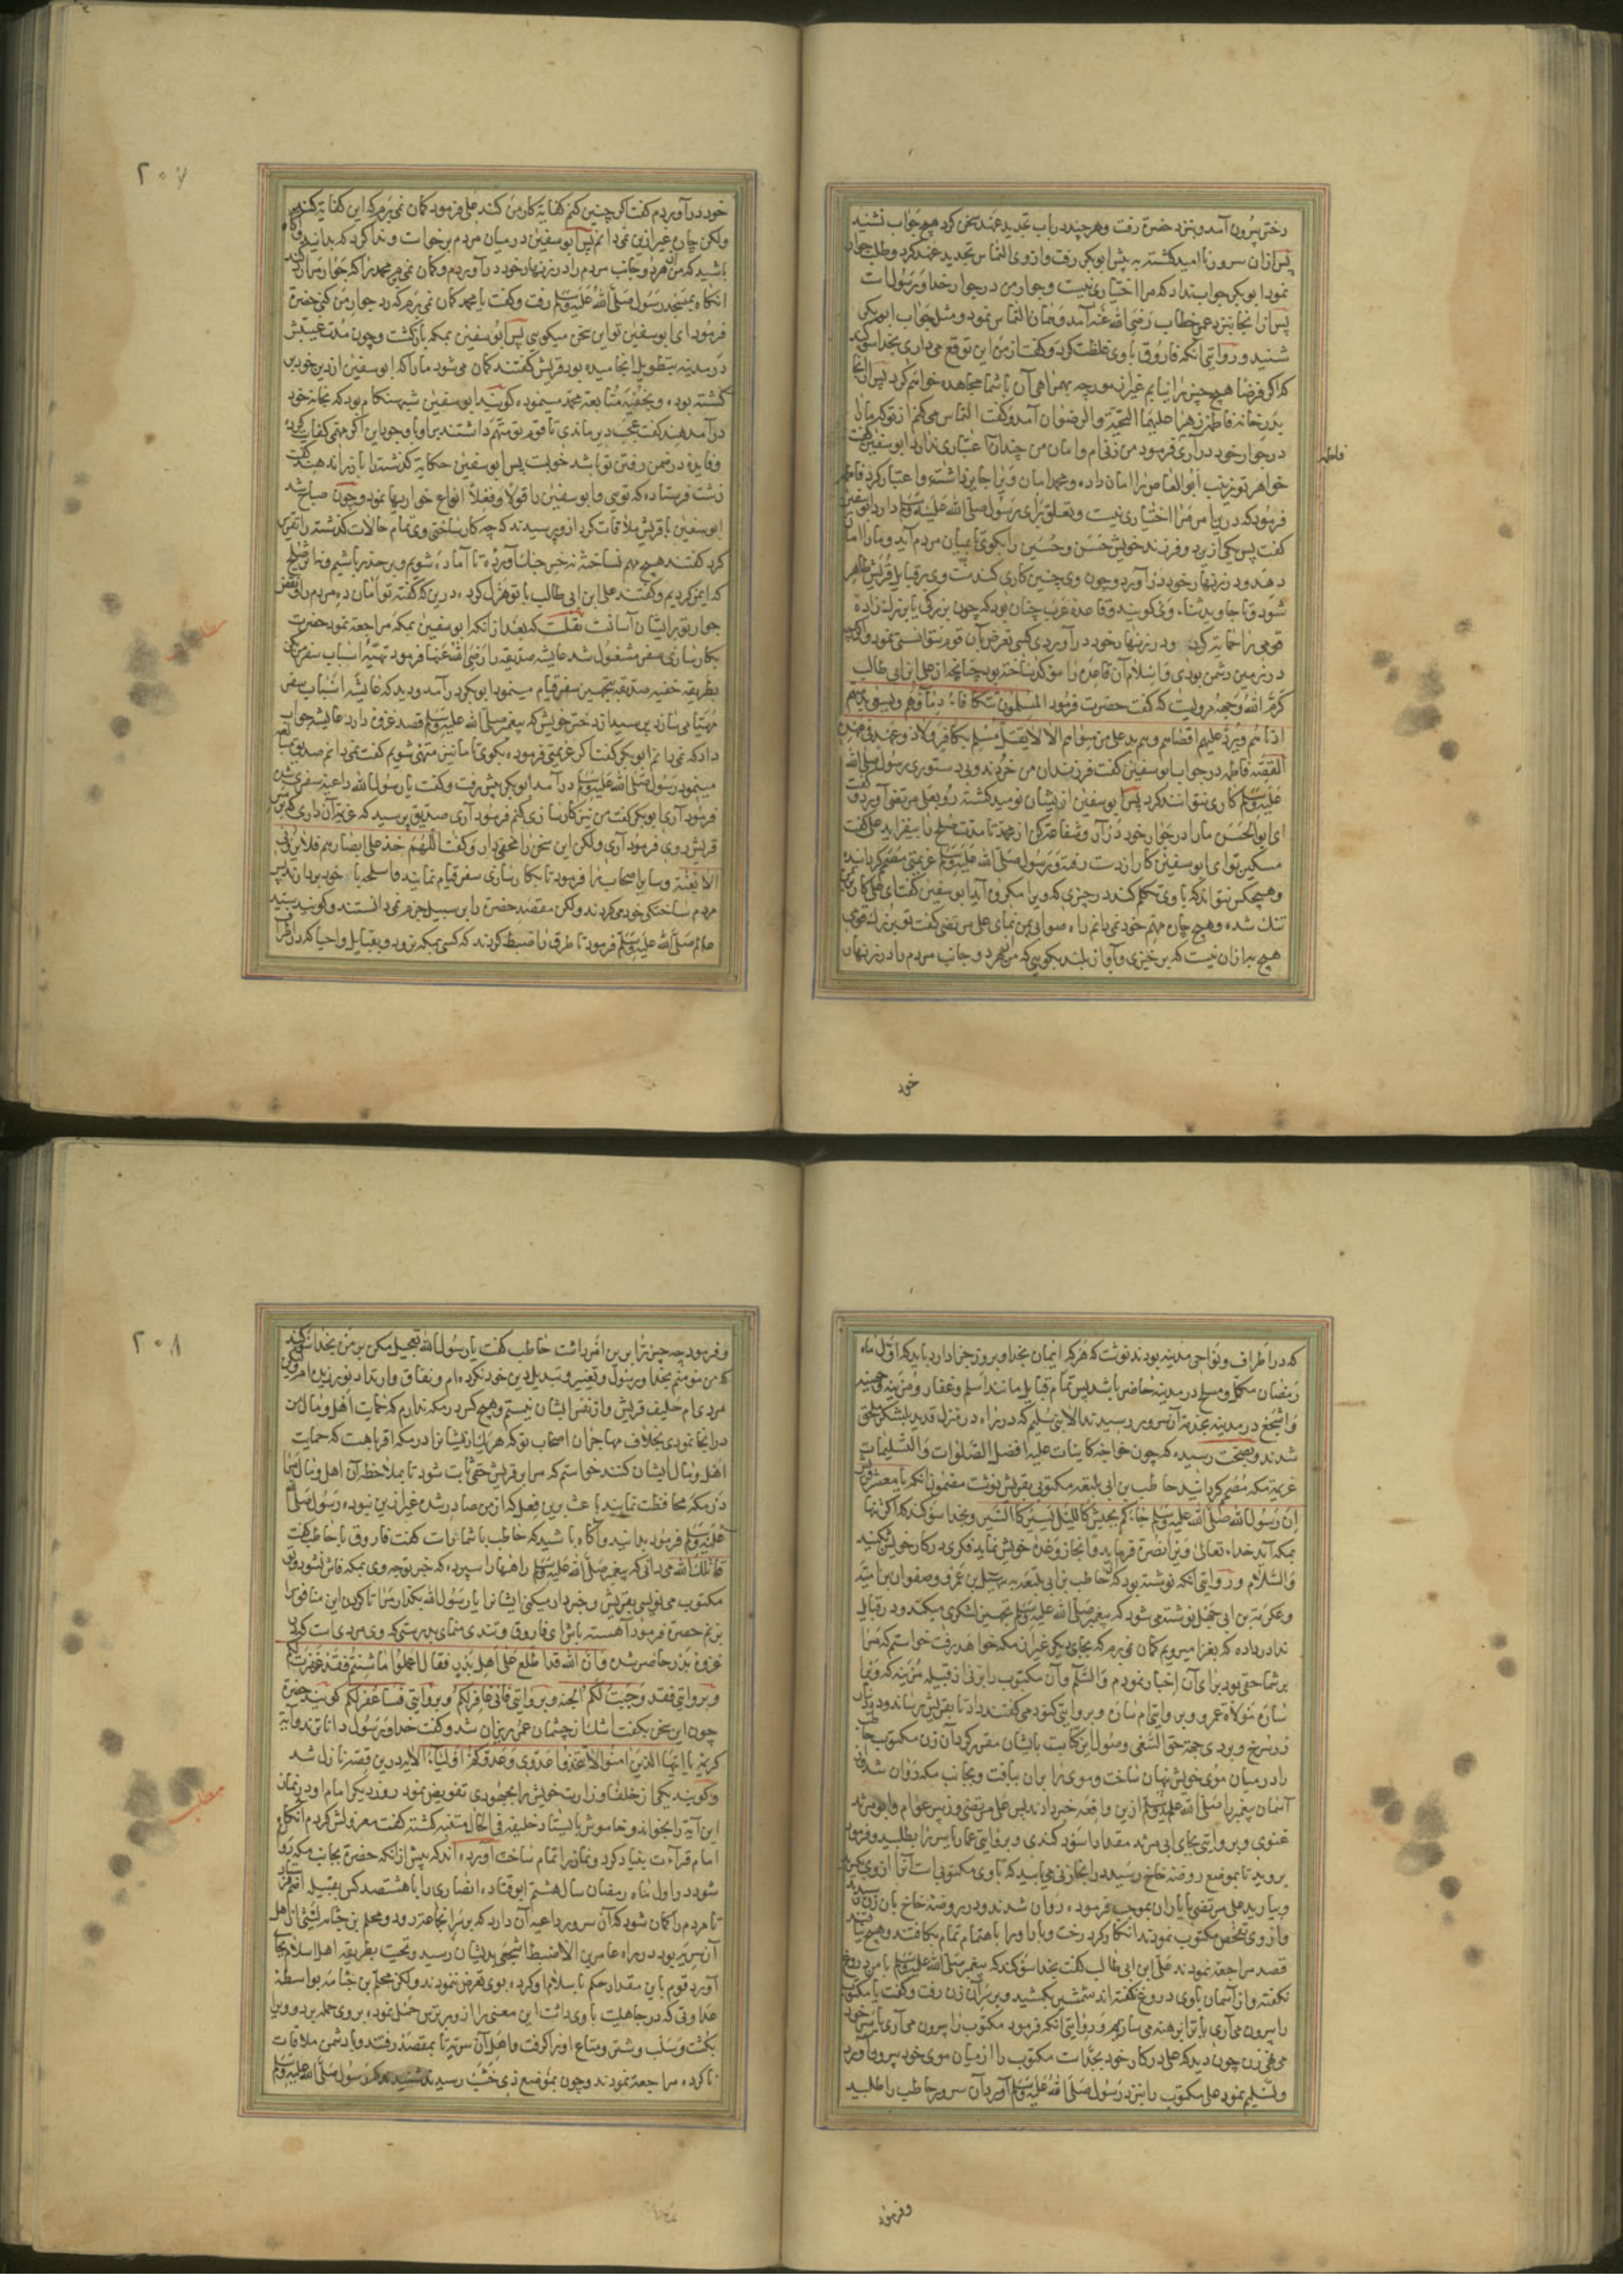 دختر بیرون آمد و بنزد حضرت رفت و هر چند در باب تجدید عهد سخن کرد هیچ جواب نشنید
پس ازان سرور ناامید کشته به پیش ابوبکر رفت و از وی التماس تجدید عهد کرد و طلب جوار
نمود ابوبکر جواب داد که مرا اختیاری نیست و جوار من در جوار خدا و رسول است
پس از انجا بنزد عمر خطاب رضی الله عنه آمد و همان التماس نمود و مثل جواب ابوبکر
شنید و روایتی آنکه فاروق با وی غلظت کرد و کفت از من این توقع می داری بخدا سوکند
که اکر فرضا هیچ چیز نیابم غیر از مورچه بهمراهی آن با شما مجاهده خواهم کرد پس از انجا
بدر خانه فاطمه زهرا علیهما التحیة والرضوان آمد و کفت التماس می کنم از تو که مارا
در جوار خود در آری فرمود من زنی ام و امان من چندان اعتباری ندارد ابوسفین کفت
فاطمه
خواهر تو زینب ابوالعاص را امان داده و محمد امان ویرا جایز داشته و اعتبار کرد فاطمه
فرمود که درین امر مرا اختیاری نیست و تعلق برای رسول صلی الله علیه وسلم دارد ابوسفین
کفت پس یکی از دو فرزند خویش حسن و حسین را بکوی تا بمیان مردم آید و مارا امان
دهد و در زنهار خود در آورد و چون وی چنین کاری کند
شود و تا جاوید و می کویند و قاعده عرب چنان بود که چون بزرکی یا بزرک زاده
قومی را حمایت کردی و در زنهار خود در آوردی کسی تعرض بآن قوم نتوانستی نمود
در زمین دشمن بودی و اسلام آن قاعده را موکد ساخته بود چنانچه از علی ابن ابی طالب
کرم الله وجهه مرویست که کفت حضرت فرمود المسلمون تتکافأ دماؤهم ویسعی بذمتهم
ادناهم ویرد علیهم اقصاهم وهم ید علی من سواهم الا لا یقتل مسلم بکافر ولا ذو عهد فی عهده
القصه فاطمه در جواب ابوسفین کفت فرزندان من خردند و بی دستوری رسول صلی الله
علیه وسلم کاری نتوانند کرد پس ابوسفین از ایشان نومید کشته رو بعلی مرتضی آورد و کفت
ای ابوالحسن مارا در جوار خود در آر و شفاعت کن از محمد تا مدت صلح را بیفزاید علی کفت
مسکین تو ای ابوسفین کار از دست رفته و رسول صلی الله علیه وسلم عزیمتی مصمم کردانیده
و هیچکس نتواند که با وی تکلم کند در چیزی که ویرا مکروه آید ابوسفین کفت ای علی کار بر من
تنک شده و هیچ چاره مهم خود نمی دانم راه صوابی بمن نمای علی مرتضی کفت تو بزرک قومی
هیچ به ازان نیست که برخیزی و بآواز بلند بکویی که من از هر دو جانب مردم را در زنهار
خود
۲۰۷
خود در آوردم کفت اکر چنین کنم کفایت کار من کند علی فرمود کمان نمی برم که این کفایت کند
ولکن چاره غیر ازین نمی دانم پس ابوسفین در میان مردم برخاست و ندا کرد که بدانید و آکاه
باشید که من از هر دو جانب مردم را در زنهار خود در آوردم و کمان نمی برم محمد را که جوار مرا رد کند
آنکاه بمسجد رسول صلی الله علیه وسلم رفت و کفت یا محمد کمان نمی برم که رد جوار من کنی حضرت
فرمود ای ابوسفین تو این سخن میکویی پس ابوسفین بمکه بازکشت و چون مدت غیبتش
در مدینه بتطویل انجامیده بود قریش کفتند کمان می شود ما را که ابوسفین از دین خود بر
کشته بود و بخفیه متابعت محمد مینموده کویند ابوسفین شب هنکام بود که بخانه خود
در آمد هند کفت عجب دیر ماندی تا قوم تو متهم داشتند ترا و با وجود این اکر مهمی کفایت کرده
و فایده در ضمن رفتن تو باشد خوبست پس ابوسفین حکایت کذشته را باز راند هند کفت
زشت فرستاده که تویی و ابوسفین را قولا و فعلا انواع خواریها نمود و چون صباح شد
ابوسفین با قریش ملاقات کرد ازو پرسیدند که چه کار ساختی وی تمام حالات کذشته را تقریر
کرد کفتند هیچ مهم نساخته نه خبر جنک آورده تا آماده شویم و بر حذر باشیم و نه از صلح
که ایمن کردیم و کفتند علی ابن ابی طالب با تو هزل کرده درین که کفته تو امان ده مردم را و نقض
جوار تو بر ایشان آسانست نقلست که بعد از آنکه ابوسفین بمکه مراجعت نمود حضرت
بکارسازی سفر مشغول شد عایشه صدیقه را رضی الله عنها فرمود تهیئه اسباب سفر من کن
بطریقه خفیه صدیقه بتجهیز سفر قیام مینمود ابوبکر در آمد و دید که عایشه اسباب سفر
مهیا می سازد پرسید از دختر خویش که پیغمبر صلی الله علیه وسلم قصد غزوه دارد عایشه جواب
داد که نمی دانم ابوبکر کفت اکر عزیمتی فرموده بکوی تا ما نیز متهیء شویم کفت نمی دانم صدیق
مینمود رسول صلی الله علیه وسلم در آمد ابوبکر پیش رفت و کفت یا رسول الله داعیه سفری
فرمود آری ابوبکر کفت من نیز کارسازی کنم فرمود آری صدیق پرسید که عزیمت کجا داری
قریش روی فرمود آری ولکن این سخن را مخفی دار و کفت اللهم خذ علی ابصارهم فلا یرونی
الا بغتة و سایر اصحاب را فرمود تا بکارسازی سفر قیام نمایند و اسلحه با خود بردارند پس
مردم ساختکی خود می کردند ولکن مقصد حضرت را بر سبیل جزم نمی دانستند و کویند سید
عالم صلی الله علیه وسلم فرمود تا طرق را ضبط کردند که کسی بمکه نرود و بقبایل و احیا که در اطراف
که در اطراف و نواحی مدینه بودند نوشت که هر که ایمان بخدا و بروز جزا دارد باید که اول ماه
رمضان مکمل و مسلح در مدینه حاضر باشد پس تمام قبایل مانند اسلم و غفار و مزینه و جهینه
و اشجع در مدینه بخدمت آن سرور رسیدند الا بنی سلیم که در راه در منزل قدید بلشکر ملحق
شدند و بصحت رسیده که چون خواجه کاینات علیه افضل الصلوات والتسلیمات
عزیمت مکه مصمم کردانید حاطب بن ابی بلتعه مکتوبی بقریش نوشت مضمون آنکه یا معشر قریش
ان رسول الله صلی الله علیه وسلم جاءکم بجیش کاللیل یسیر کالسیل و بخدا سوکند که اکر تنها
بمکه آید خداء تعالی ویرا نصرت فرماید و انجاز وعده خویش نماید فکری در کار خویش کنید
والسلام و روایتی آنکه نوشته بود که حاطب بن ابی بلتعه به سهیل بن عمرو و صفوان بن امیه
و عکرمة بن ابی جهل نوشته می شود که پیغمبر صلی الله علیه وسلم تجهیز لشکری میکند و در قبایل
ندا در داده که بغزا میرویم کمان نمی برم که بجای دیکر غیر از مکه خواهد رفت خواستم که مرا
بر شما حقی بود برای آن اخبار نمودم والسلام و آن مکتوب را بزنی از قبیله مزینه که ویرا
ساره مولاة عمرو و بروایتی ام ساره و بروایتی کنود می کفتند داد تا بقریش رساند و ده دینار
زر سرخ و بردی بجهت حق السعی وصول این کتابت بایشان مقرر کرد آن زن مکتوب حاطب
را در میان موی خویش نهان ساخت و موی را بران ببافت و بجانب مکه روان شد از
آسمان پیغمبر را صلی الله علیه وسلم ازین واقعه خبر دادند پس علی مرتضی و زبیر عوام و ابومرثد
غنوی و بروایتی بجای ابی مرثد مقداد اسود کندی و بروایتی عمار یاسر را بطلبید و فرمود
بروید تا بموضع روضه خاخ رسید در انجا زنی می یابید که با وی مکتوبی است آنرا ازوی بکیرید
و بیارید علی مرتضی با یاران بموجب فرموده روان شدند و در روضه خاخ بان زن رسیدند
و از وی تفحص مکتوب نمودند انکار کرد رخت و بار او را باهتمام تمام بکافتند و هیچ نیافتند
قصد مراجعت نمودند علی ابن ابی طالب کفت بخدا سوکند که پیغمبر صلی الله علیه وسلم با من دروغ
نکفته و از آسمان با وی دروغ نکفته اند شمشیر بکشید و بر سر آن زن رفت و کفت یا مکتوب
را بیرون می آری یا ترا برهنه می سازیم و روایتی آنکه فرمود مکتوب را بیرون می آری یا سر خود
می دهی زن چون دید که علی در کار خود بجد است مکتوب را از میان موی خود بیرون آورد
و تسلیم نمود علی مکتوب را بنزد رسول صلی الله علیه وسلم آورد آن سرور حاطب را طلبید
وفرمود
۲۰۸
و فرمود چه چیز ترا برین امر داشت حاطب کفت یا رسول الله تعجیل مکن بر من بخدا سوکند
که من مومنم بخدا و رسول و تغییر و تبدیل دین خود نکرده ام و نفاق و ارتداد نورزیدم ولیکن
مردی ام حلیف قریش و از نفس ایشان نیستم و هیچ کس در مکه ندارم که حمایت اهل و مال من
در انجا نمودی بخلاف مهاجران اصحاب تو که هر یک از ایشان را در مکه اقربا هست که حمایت
اهل و مال ایشان کنند خواستم که مرا بر قریش حقی ثابت شود تا بملاحظه آن اهل و مال مرا
در مکه محافظت نمایند باعث برین فعل که از من صادر شده غیر ازین نبوده رسول صلی الله
علیه وسلم فرمود بدانید و آکاه باشید که حاطب با شما راست کفت فاروق با حاطب کفت
قاتلک الله می دانی که پیغمبر صلی الله علیه وسلم راهها را سپرده که خبر توجه وی بمکه فاش نشود و تو
مکتوب می نویسی بقریش و خبردار میکنی ایشانرا یا رسول الله بکذار مرا تا کردن این منافق را
بزنم حضرت فرمود آهسته باش ای فاروق و تندی منمای بدرستی که وی مردی است که در
غزوه بدر حاضر شده و ان الله قد اطلع علی اهل بدر فقال اعملوا ما شئتم فقد غفرت لکم
و بروایتی فقد وجبت لکم الجنة و بروایتی فانی غافر لکم و بروایتی فساغفر لکم کویند حضرت
چون این سخن بکفت اشک از چشمان عمر ریزان شد و کفت خدا و رسول دانا ترند و آیة
کریمه یا ایها الذین امنوا لا تتخذوا عدوی وعدوکم اولیاء الایه درین قصه نازل شد
و کویند یکی از خلفا وزارت خویش را بجهودی تفویض نمود روزی یکی امام او در نماز
این آیه را بخواند و خاموش بایستاد خلیفه فی الحال متنبه کشته کفت معزولش کردم آنکاه
امام قراءت بنیاد کرد و نماز را تمام ساخت آورده اند که پیش از انکه حضرت بجانب مکه روان
شود در اول ماه رمضان سال هشتم ابو قتاده انصاری را با هشتصد کس بقبیل اضم فرستاد
تا مردم را کمان شود که آن سرور داعیه آن دارد که بر سر انجماعت رود و محلم بن جثامه لیثی از اهل
آن سریه بود در راه عامر بن الاضبط اشجعی بدیشان رسید و تحیت بطریقه اهل اسلام بجا
آورد قوم باین مقدار حکم باسلام او کرده بوی تعرض ننمودند ولکن محلم بن جثامه بواسطه
عداوتی که در جاهلیت با وی داشت این معنی را ازو بر ترس حمل نموده بر وی حمله برد و ویرا
بکشت و سلب و شتر و متاع او را کرفت و اهل آن سریه تا بمقصد رفتند و با دشمن ملاقات
ناکرده مراجعت نمودند و چون بموضع ذی خشب رسیدند شنیدند که رسول صلی الله علیه وسلم